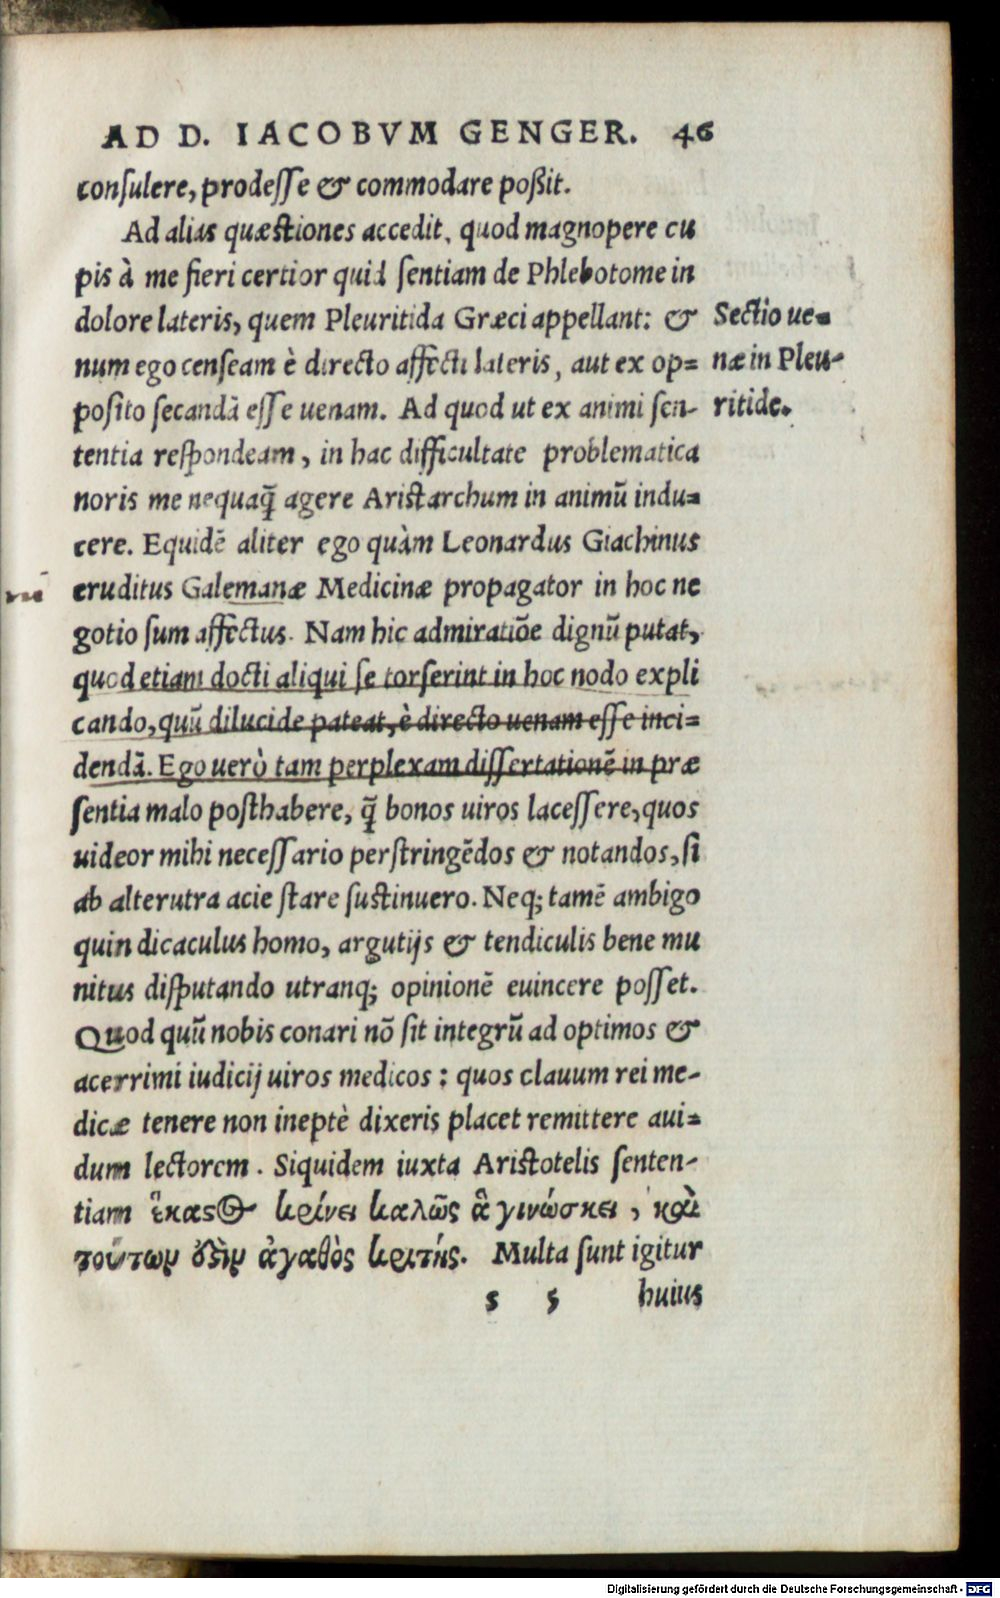 AD D. IACOBVM GENGER. 46
consulere, prodesse & commodare poßit.
Ad alias quæstiones accedit, quod magnopere cu
pis à me fieri certior quid sentiam de Phlebotome in
dolore lateris, quem Pleuritida Græci appellant: &
num ego censeam è directo affecti lateris, aut ex op=
posito secandā esse uenam. Ad quod ut ex animi sen-
tentia respondeam, in hac difficultate problematica
noris me nequaq̃ agere Aristarchum in animū indu=
cere. Equidē aliter ego quàm Leonardus Giachinus
eruditus Galemanæ Medicinæ propagator in hoc ne
gotio sum affectus. Nam hic admiratiōe dignū putat,
quod etiam docti aliqui se torserint in hoc nodo expli
cando, quū dilucide pateat, è directo uenam esse inci=
dendā. Ego uerò tam perplexam dissertationē in præ
sentia malo posthabere, q̃ bonos uiros lacessere, quos
uideor mihi necessario perstringēdos & notandos, si
ab alterutra acie stare sustinuero. Neq; tamē ambigo
quin dicaculus homo, argutijs & tendiculis bene mu
nitus disputando utranq; opinionē euincere posset.
Quod quū nobis conari nō sit integrū ad optimos &
acerrimi iudicij uiros medicos: quos clauum rei me-
dicæ tenere non ineptè dixeris placet remittere aui=
dum lectorem. Siquidem iuxta Aristotelis senten-
tiam ἕκαστος κρίνει καλῶς ἃ γινώσκει, καὶ
τούτων ἐστὶν ἀγαθὸς κριτής. Multa sunt igitur
s 5 huius
Sectio ue=
næ in Pleu-
ritide.
Digitalisierung gefördert durch die Deutsche Forschungsgemeinschaft - DFG